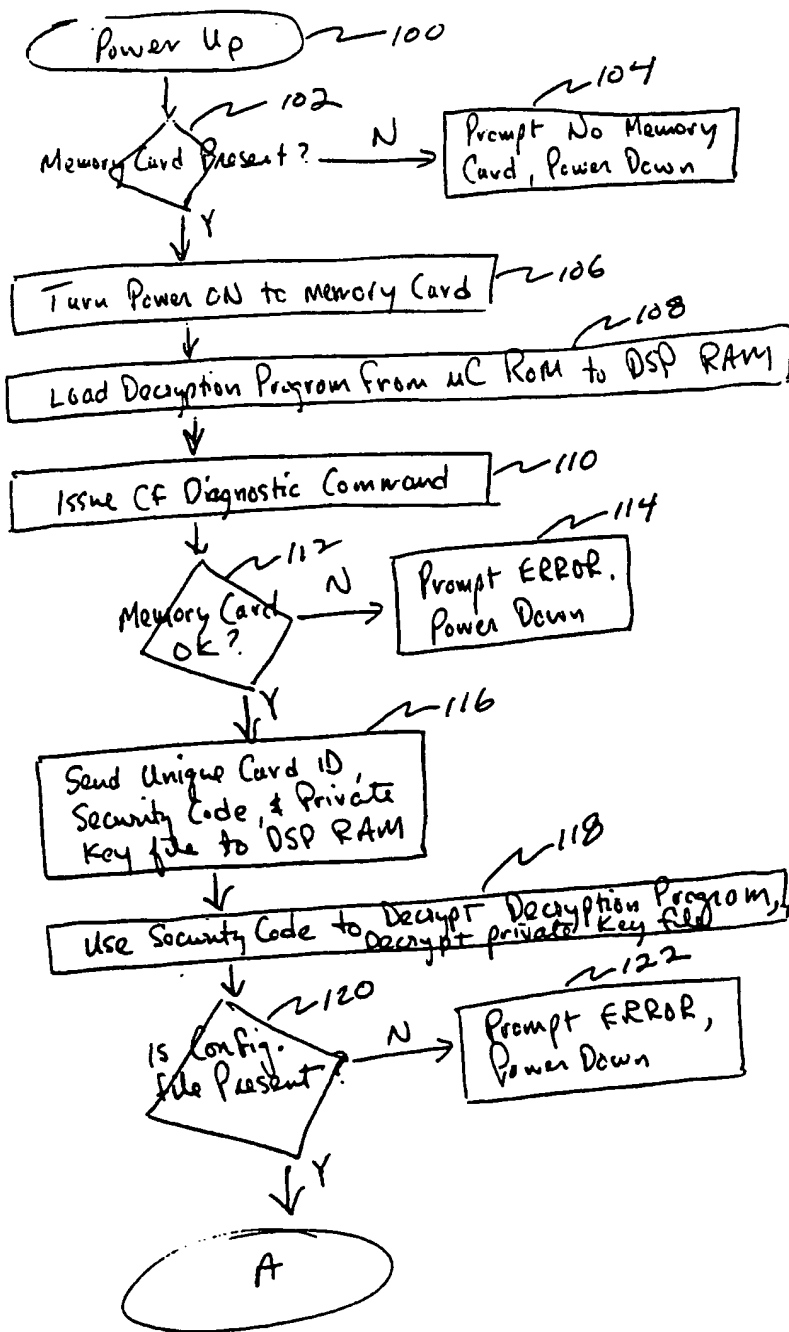 Power Up
100
102
Memory Card Present?
N
104
Prompt No Memory
Card, Power Down
Y
Turn Power ON to Memory Card
106
108
Load Decryption Program from uC ROM to DSP RAM
Issue CF Diagnostic Command
110
112
Memory Card
OK?
N
114
Prompt ERROR.
Power Down
Y
116
Send Unique Card ID,
Security Code, & Private
Key file to DSP RAM
118
Use Security Code to Decrypt Decryption Program,
Decrypt private Key file
120
Is Config.
file Present?
N
122
Prompt ERROR,
Power Down
Y
A